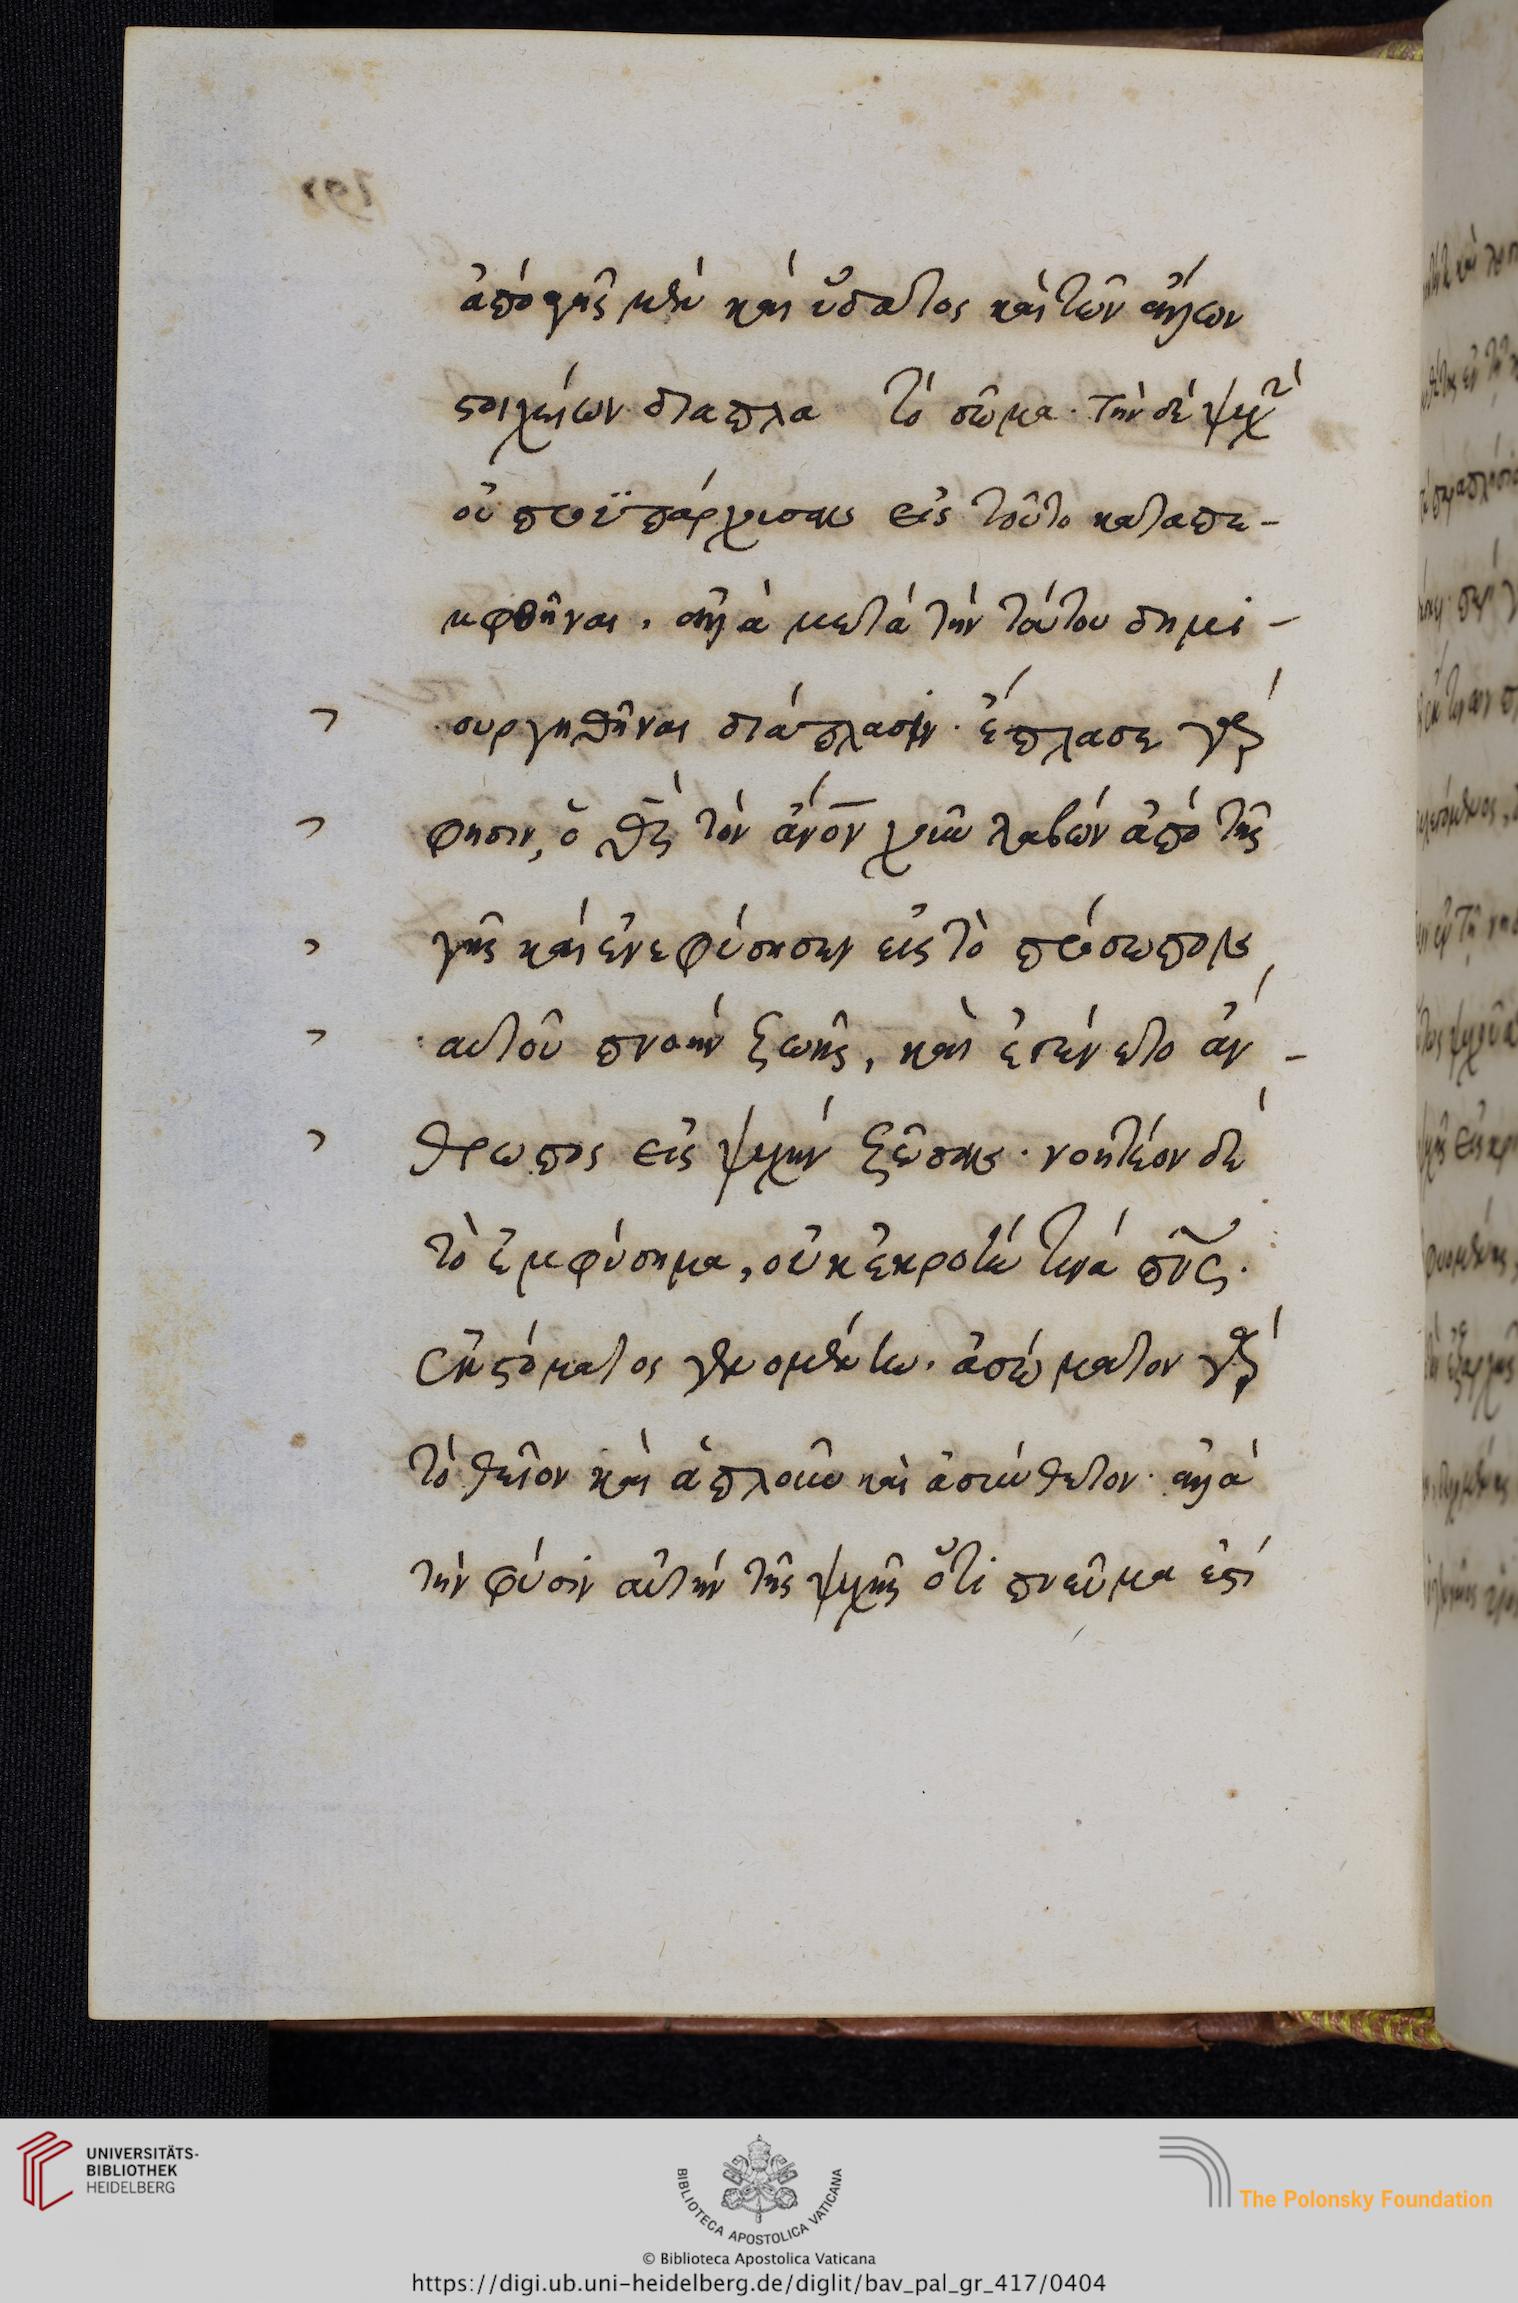 ἀπὸ γῆς μὲν καὶ ὕδατος καὶ τῶν ἄλλων
στοιχείων διαπλα τὸ σῶμα· τὴν δὲ ψυχὴ
οὐ προϋπάρχουσαν εἰς τοῦτο καταπε-
μφθῆναι, ἀλλὰ μετὰ τὴν τούτου δημι-
ουργηθῆναι διάπλασιν· ἔπλασε γὰρ
φησιν, ὁ θς τὸν ἄνον χοῦν λαβὼν ἀπὸ τῆς
γῆς καὶ ἐνεφύσησεν εἰς τὸ πρόσωπον
αὐτοῦ πνοὴν ζωῆς, καὶ ἐγένετο ἄν-
θρωπος εἰς ψυχὴν ζῶσαν· νοητέον δὲ
τὸ ἐμφύσημα, οὐκ ἐκροήν τινα πνς·
ἐκ στόματος γενομένην· ἀσώματον γὰρ
τὸ θεῖον καὶ ἁπλοῦν καὶ ἀσύνθετον· ἀλλὰ
τὴν φύσιν αὐτὴν τῆς ψυχῆς ὅτι πνεῦμα ἐστὶ
UNIVERSITÄTS-
BIBLIOTHEK
HEIDELBERG
BIBLIOTECA APOSTOLICA VATICANA
The Polonsky Foundation
© Biblioteca Apostolica Vaticana
https://digi.ub.uni-heidelberg.de/diglit/bav_pal_gr_417/0404